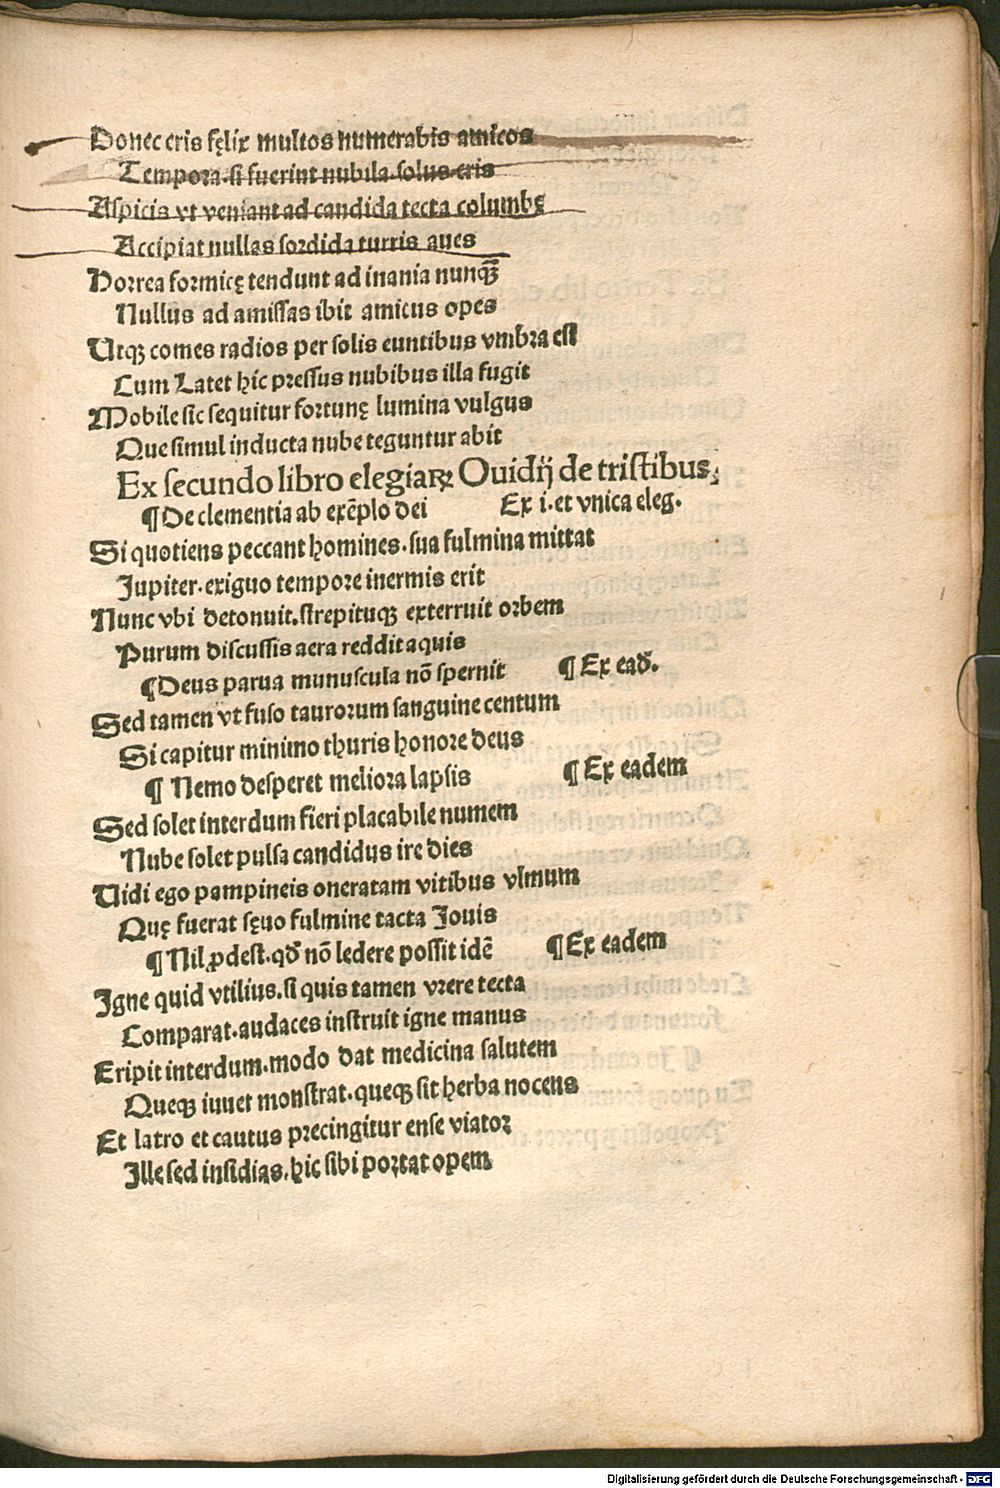 Donec eris fęlix multos numerabis amicos
Tempora.si fuerint nubila.solus eris
Aspicis vt veniant ad candida tecta columbę
Accipiat nullas sordida turris aues
Horrea formicę tendunt ad inania nunqȝ̃
Nullus ad amissas ibit amicus opes
Utqȝ comes radios per solis euntibus vmbra est
Cum Latet hic pressus nubibus illa fugit
Mobile sic sequitur fortunę lumina vulgus
Que simul inducta nube teguntur abit
Ex secundo libro elegiaꝝ Ouidij de tristibus;
¶ De clementia ab exẽplo dei Ex i.et vnica eleg.
Si quotiens peccant homines.sua fulmina mittat
Jupiter.exiguo tempore inermis erit
Nunc vbi detonuit.strepituqȝ exterruit orbem
Purum discussis aera reddit aquis
¶ Deus parua munuscula nõ spernit ¶ Ex ead̃.
Sed tamen vt fuso taurorum sanguine centum
Si capitur minimo thuris honore deus
¶ Nemo desperet meliora lapsis ¶ Ex eadem
Sed solet interdum fieri placabile numem
Nube solet pulsa candidus ire dies
Uidi ego pampineis oneratam vitibus vlmum
Quę fuerat sęuo fulmine tacta Jouis
¶ Nil ꝓdest.qd̃ nõ ledere possit idẽ ¶ Ex eadem
Igne quid vtilius.si quis tamen vrere tecta
Comparat.audaces instruit igne manus
Eripit interdum.modo dat medicina salutem
Queqȝ iuuet monstrat.queqȝ sit herba nocens
Et latro et cautus precingitur ense viator
Ille sed insidias.hic sibi portat opem
Digitalisierung gefördert durch die Deutsche Forschungsgemeinschaft - DFG